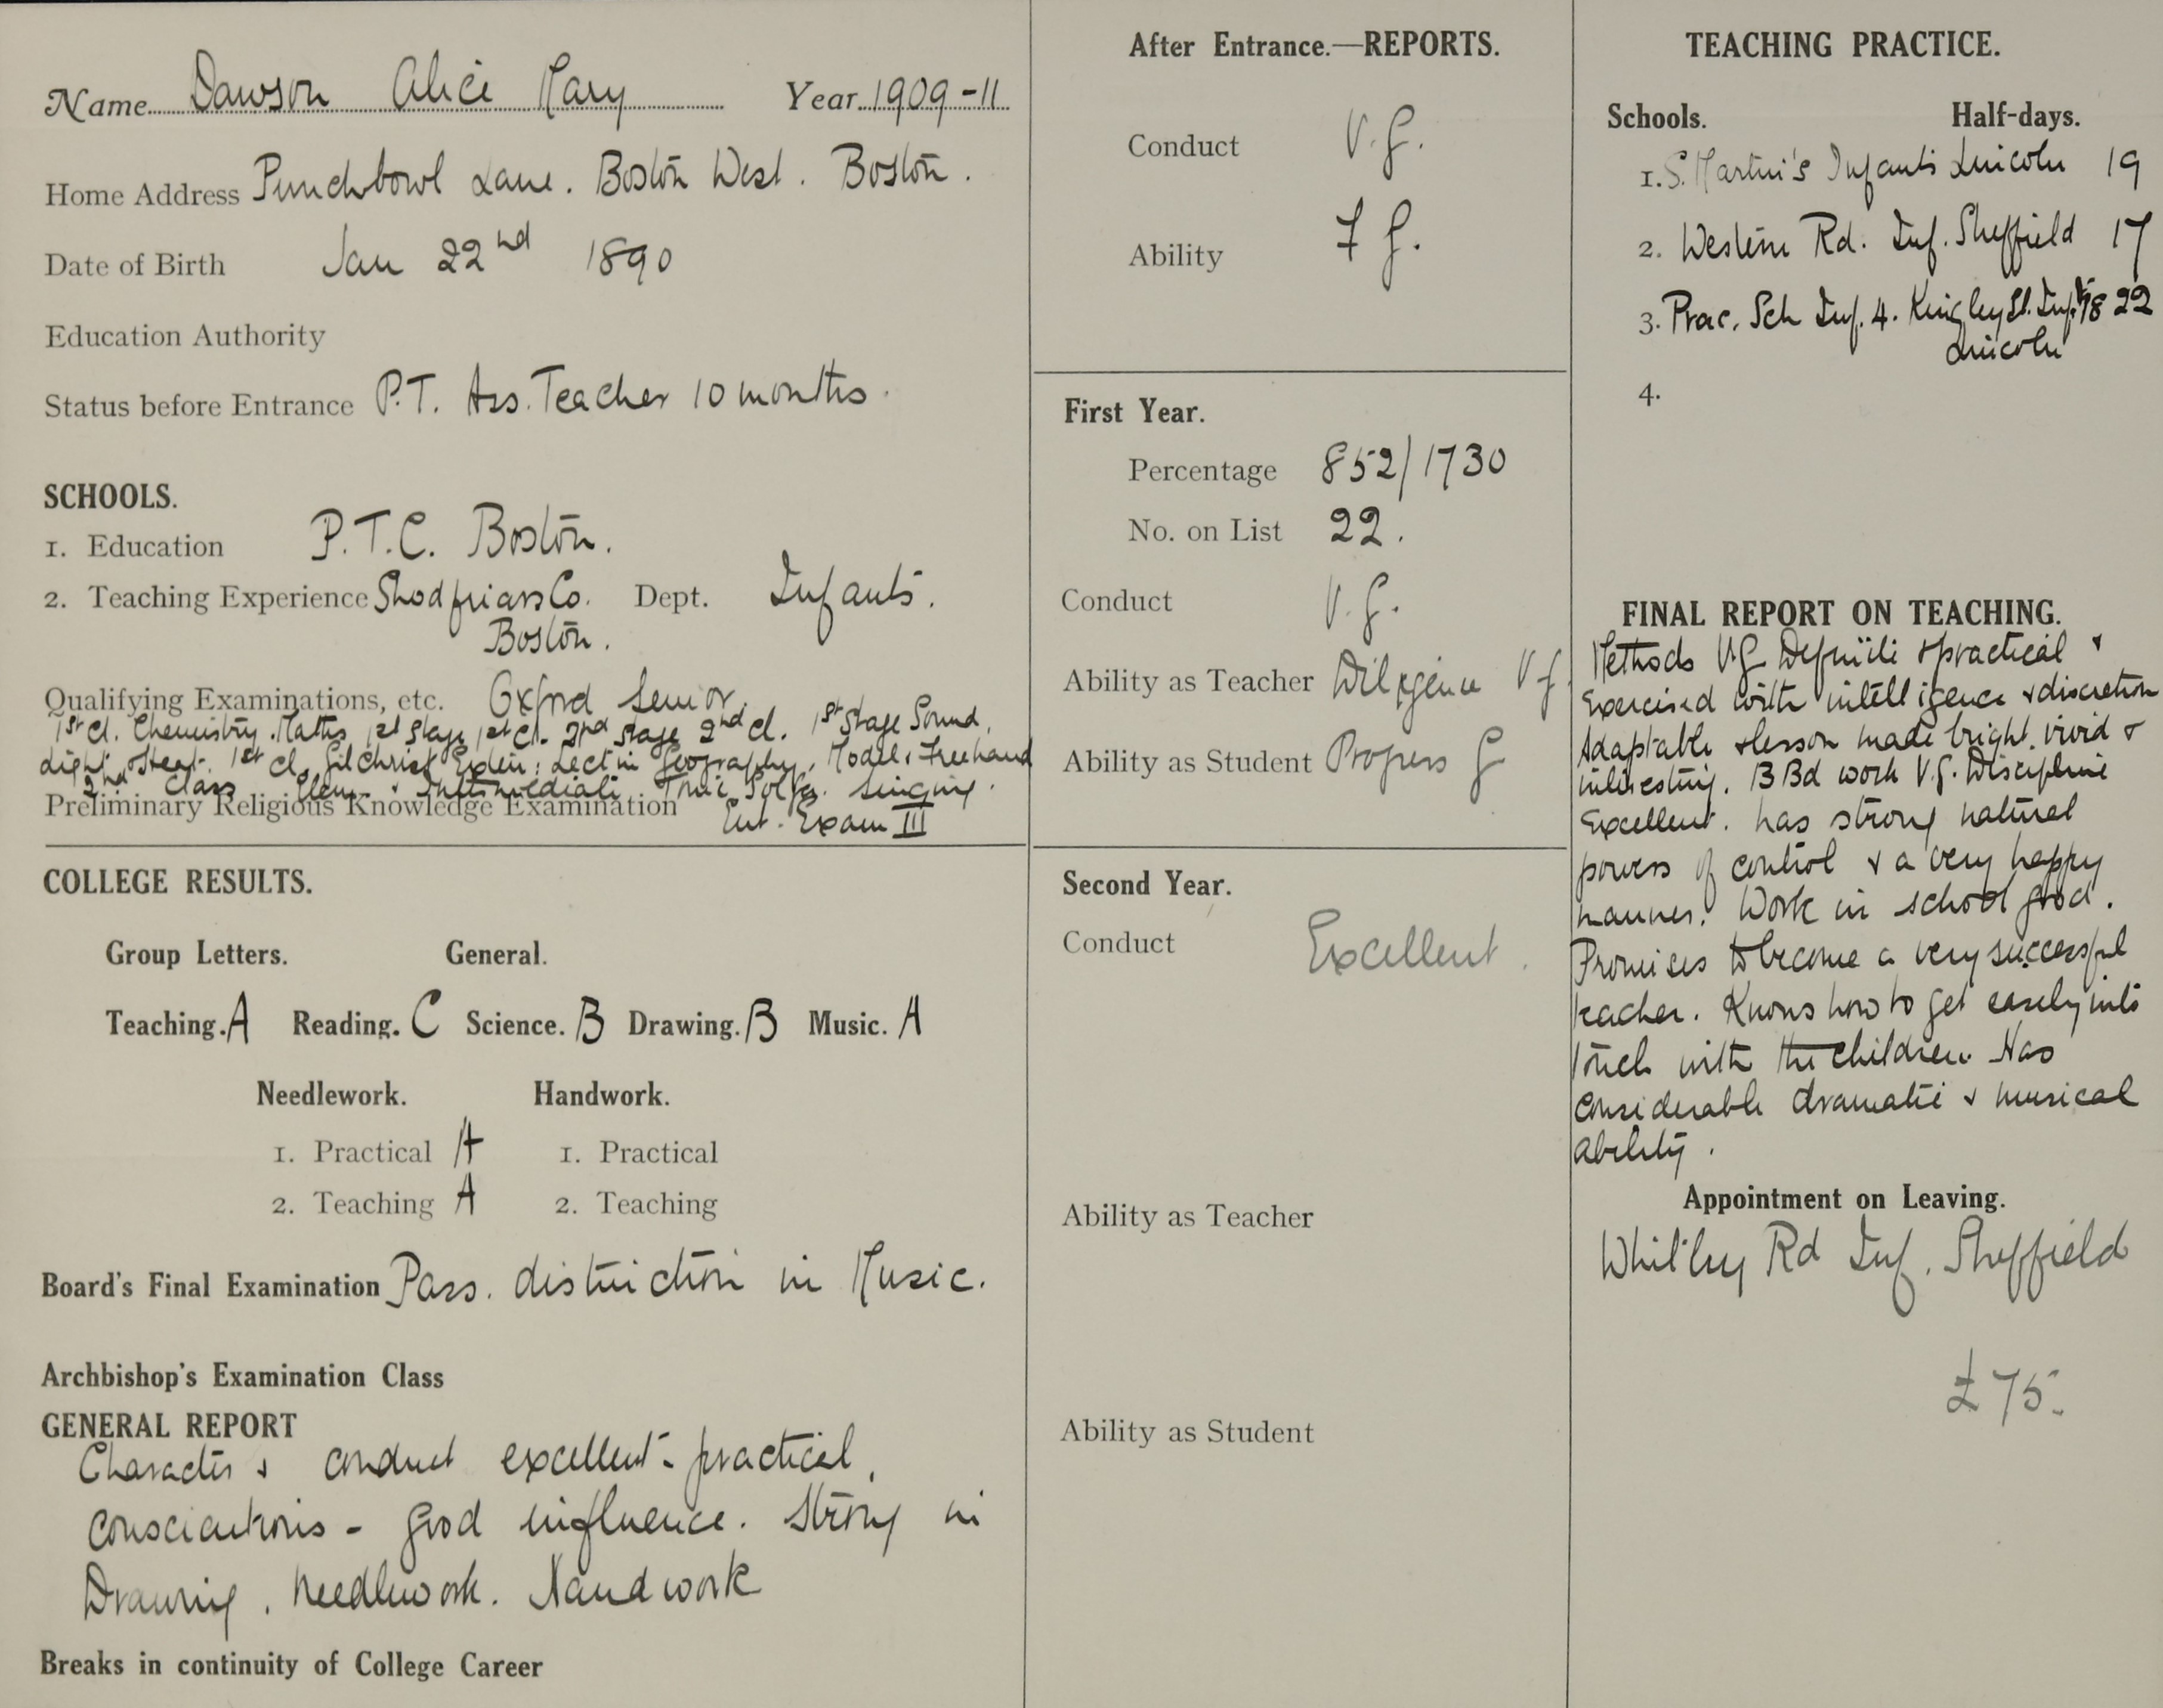 Name Dawson Alice Mary Year 1909-11
Home Address Punchbowl Lane. Boston West. Boston.
Date of Birth Jan 22nd 1890
Education Authority
Status before Entrance P.T. Ass. Teacher 10 months.
SCHOOLS.
1. Education P.T.C. Boston.
2. Teaching Experience Shodfriars Co. Dept. Infants.
Boston.
Qualifying Examinations, etc. Oxford Senior.
1st Cl. Chemistry. Maths 1st Stage 1st Cl. 2nd Stage 2nd Cl. 1st Stage Sound,
Light & Heat. 1st Cl. Gilchrist Exam: Lect in Geography. Model & Freehand
2nd Class Elem. & Intermediate Tonic Solfa. Singing.
Preliminary Religious Knowledge Examination Ent. Exam III
COLLEGE RESULTS.
Group Letters. General.
Teaching. A Reading. C Science. B Drawing. B Music. A
Needlework. Handwork.
1. Practical A 1. Practical
2. Teaching A 2. Teaching
Board's Final Examination Pass. distinction in Music.
Archbishop's Examination Class
GENERAL REPORT
Character & conduct excellent - practical,
conscientious - good influence. Strong in
Drawing, Needlework. Handwork
Breaks in continuity of College Career
After Entrance.—REPORTS.
Conduct V.G.
Ability F G.
First Year.
Percentage 852/1730
No. on List 22.
Conduct V.G.
Ability as Teacher Diligence V G
Ability as Student Progress G
Second Year.
Conduct Excellent.
Ability as Teacher
Ability as Student
TEACHING PRACTICE.
Schools. Half-days.
1. S. Martin's Infants Lincoln 19
2. Western Rd. Inf. Sheffield 17
3. Prac. Sch Inf. 4. Kingsley St. Inf. 18 22
Lincoln
4.
FINAL REPORT ON TEACHING.
Methods V.G. Definite & practical &
Exercised with intelligence & discretion
Adaptable & lesson made bright, vivid &
interesting. B Bd work V.G. Discipline
Excellent. has strong natural
powers of control & a very happy
manner. Work in school good.
Promises to become a very successful
teacher. Knows how to get easily into
touch with the children. Has
considerable dramatic & musical
ability.
Appointment on Leaving.
Whitby Rd Inf. Sheffield
£75.